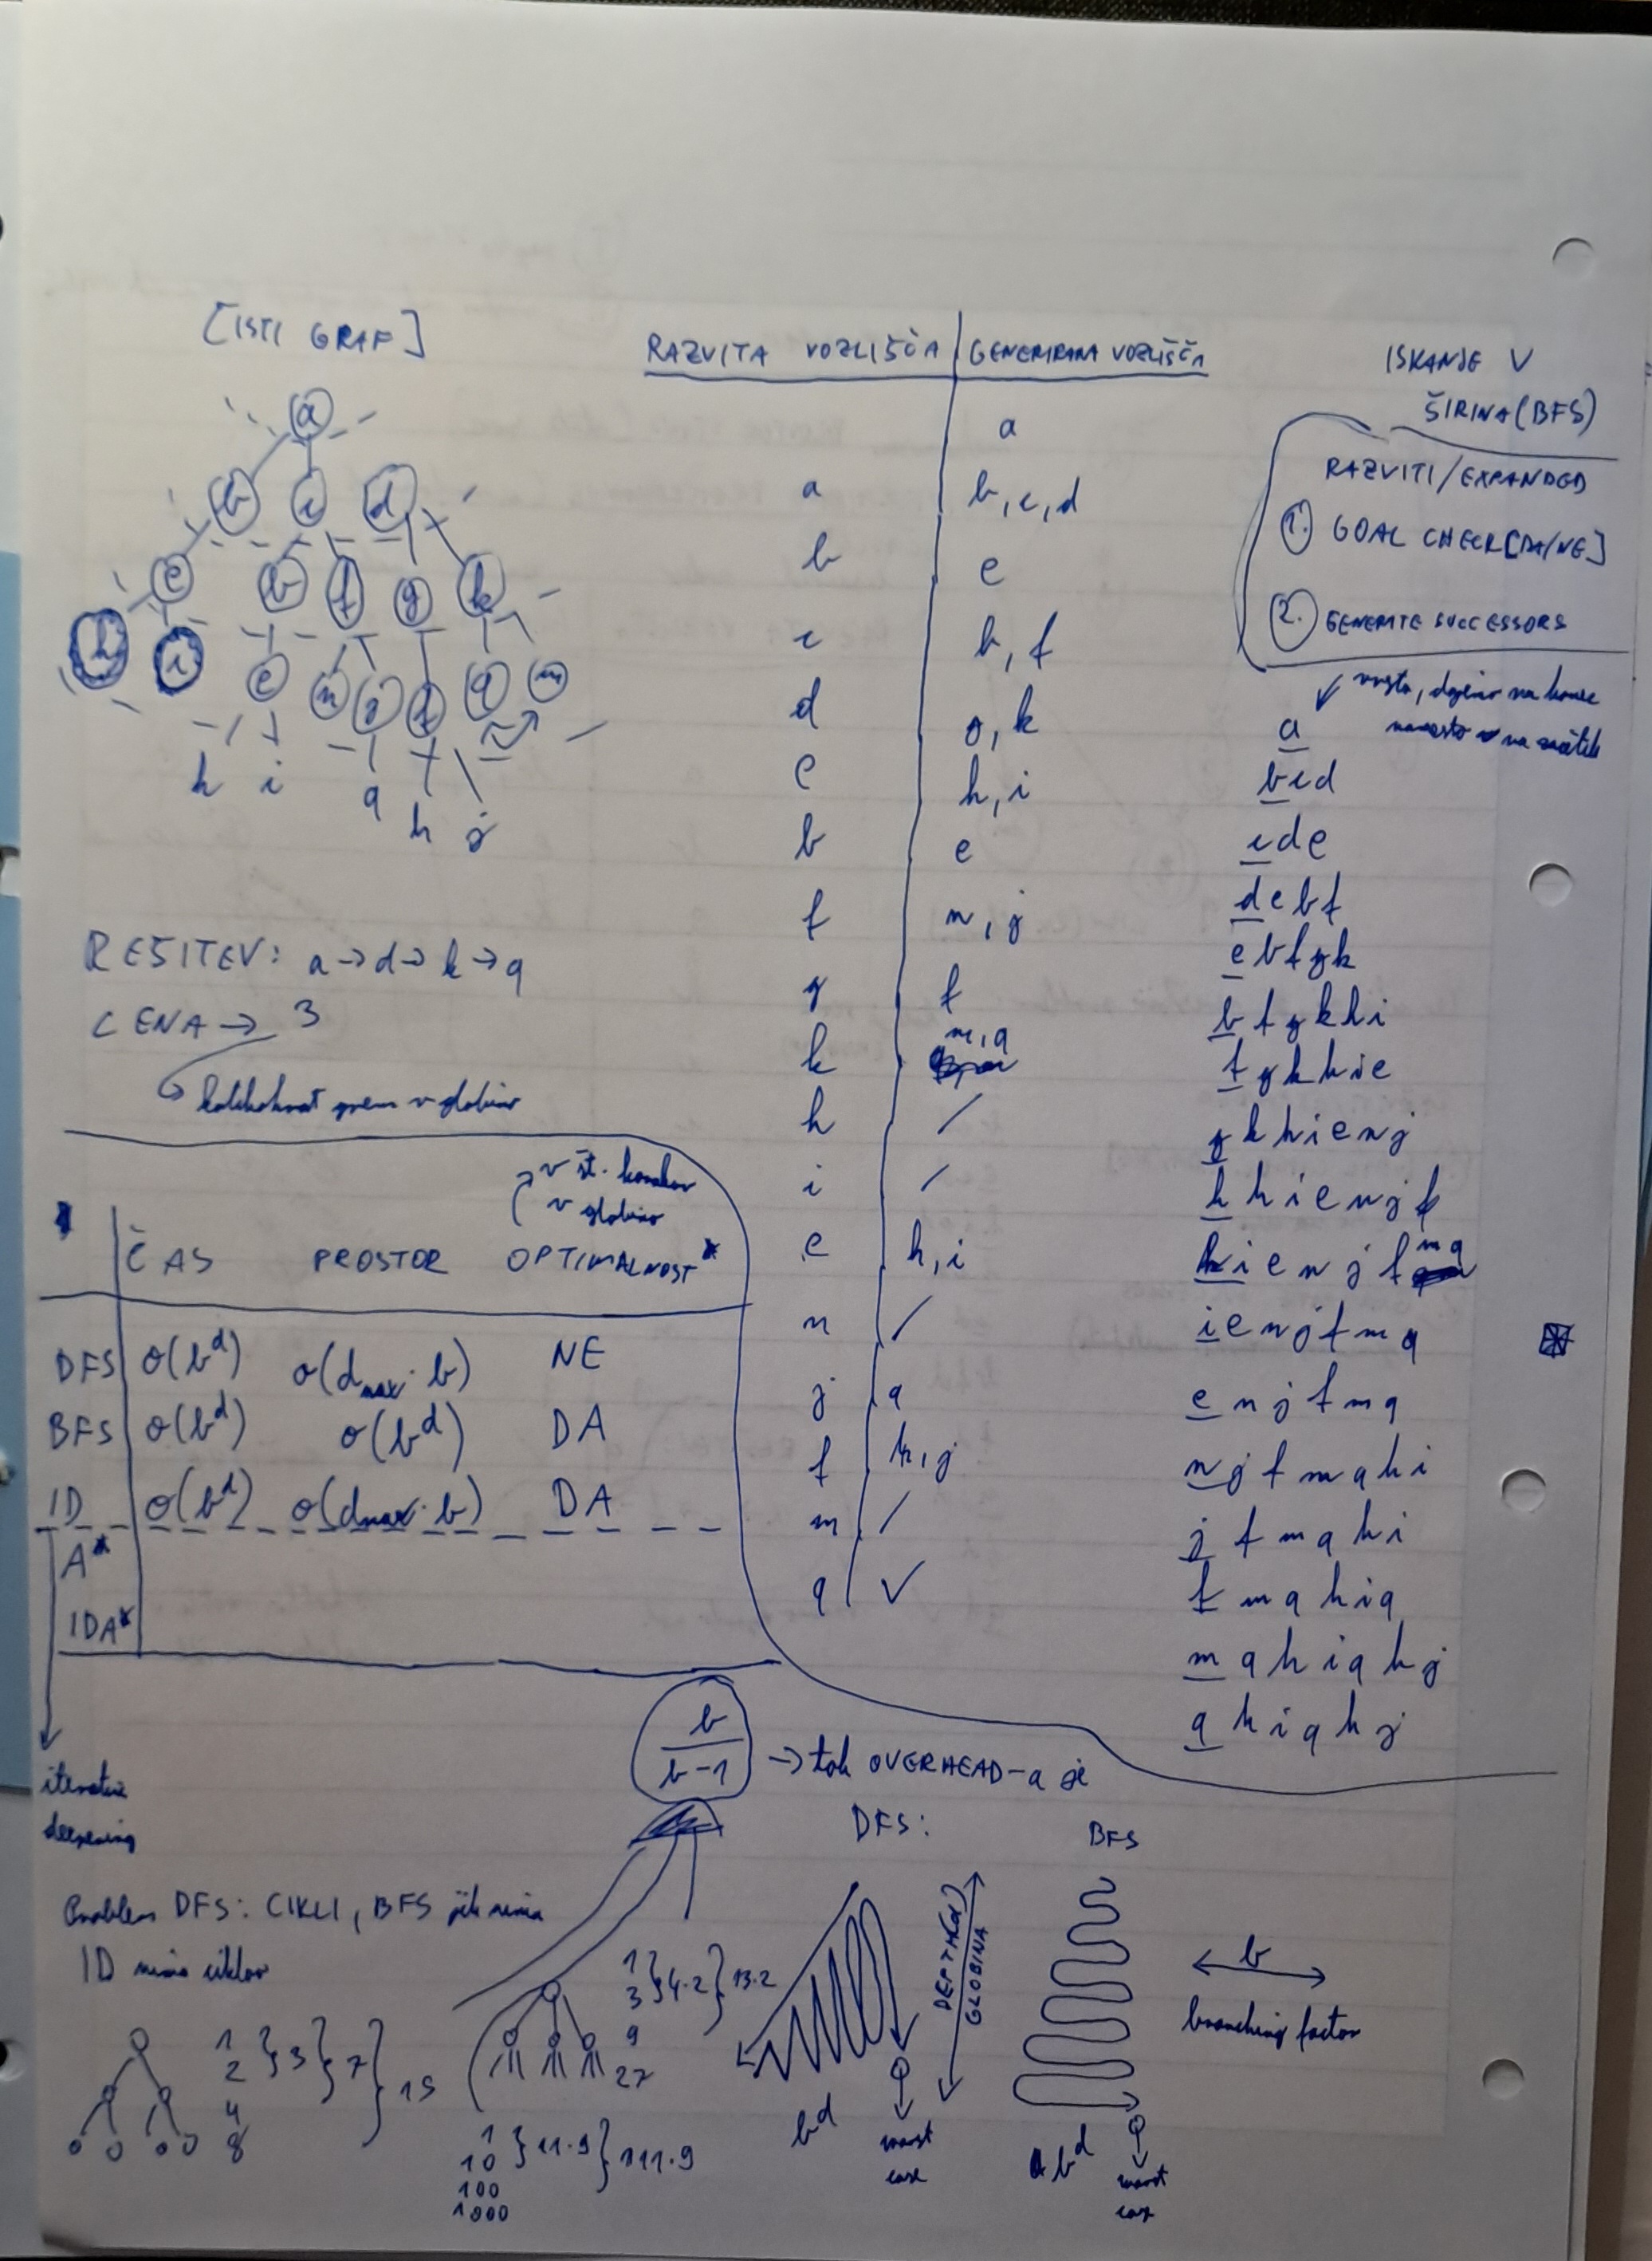 [ISTI GRAF]
a
b c d
e b f g k
h i e n j f q m
h i q h j
REŠITEV: a → d → k → q
CENA → 3
kolikokrat grem v globino
RAZVITA VOZLIŠČA | GENERIRANA VOZLIŠČA
a
a b, c, d
b e
c b, f
d g, k
e h, i
b e
f n, j
g f
k m, q
h /
i /
e h, i
n /
j q
f h, j
m /
q ✓
ISKANJE V
ŠIRINA (BFS)
RAZVITI/EXPANDED
1. GOAL CHECK [DA/NE]
2. GENERATE SUCCESSORS
vrsta, dajemo na konec
namesto na začetek
a
b c d
c d e
d e b f
e b f g k
b f g k h i
f g k h i e
g k h i e n j
k h i e n j f
h i e n j f m q
i e n j f m q
e n j f m q
n j f m q h i
j f m q h i
f m q h i q
m q h i q h j
q h i q h j
v št. korakov
v globino
ČAS PROSTOR OPTIMALNOST*
DFS O(b^d) O(d_max · b) NE
BFS O(b^d) O(b^d) DA
ID O(b^d) O(d_max · b) DA
A*
IDA*
iterative
deepening
b
b-1
→ tok OVERHEAD-a je
Problem DFS: CIKLI, BFS jih nima
ID nima ciklov
1
2 } 3 } 7 } 15
4
8
1
3 } 4·2 } 13·2
9
27
1
10 } 11·9 } 111·9
100
1000
DFS:
b^d
worst
case
DEPTH(d)
GLOBINA
BFS
b^d
worst
case
b
branching factor